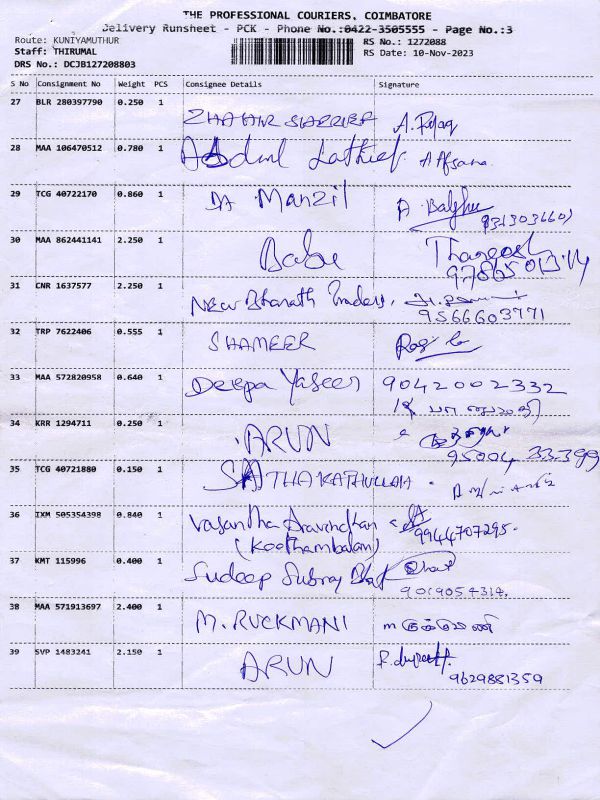 THE PROFESSIONAL COURIERS, COIMBATORE
Delivery Runsheet - PCK - Phone No.:0422-3505555 - Page No.:3
Route: KUNIYAMUTHUR
RS No.: 1272088
Staff: THIRUMAL
RS Date: 10-Nov-2023
DRS No.: DCJB127208803
S No Consignment No Weight PCS Consignee Details Signature
27 BLR 280397790 0.250 1
28 MAA 106470512 0.780 1 Abdul Lathief A Afsana
29 TCG 40722170 0.860 1 DA Manzil
30 MAA 862441141 2.250 1 Babu
31 CNR 1637577 2.250 1 New Bharath Traders,
9566603771
32 TRP 7622406 0.555 1 SHAMEER
33 MAA 572820958 0.640 1 Deepa Yaseer 9042002332
34 KRR 1294711 0.250 1 ARUN
95004 33399
35 TCG 40721880 0.150 1 SATHAKATHULLAH
36 IXM 505354398 0.840 1 Vasantha Aravindhan
(Koothambalam) 9944707295
37 KMT 115996 0.400 1 Sudeep Subray Bhat
9019054314
38 MAA 571913697 2.400 1 M. RUCKMANI
39 SVP 1483241 2.150 1 ARUN
9629881359